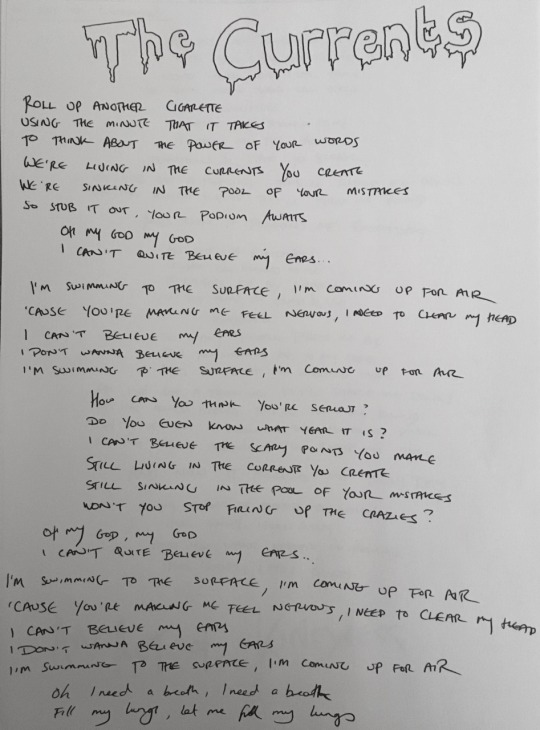 The Currents
ROLL UP ANOTHER CIGARETTE
USING THE MINUTE THAT IT TAKES
TO THINK ABOUT THE POWER OF YOUR WORDS
WE'RE LIVING IN THE CURRENTS YOU CREATE
WE'RE SINKING IN THE POOL OF YOUR MISTAKES
SO STUB IT OUT. YOUR PODIUM AWAITS
OH MY GOD MY GOD
I CAN'T QUITE BELIEVE MY EARS...
I'M SWIMMING TO THE SURFACE, I'M COMING UP FOR AIR
'CAUSE YOU'RE MAKING ME FEEL NERVOUS, I NEED TO CLEAR MY HEAD
I CAN'T BELIEVE MY EARS
I DON'T WANNA BELIEVE MY EARS
I'M SWIMMING TO THE SURFACE, I'M COMING UP FOR AIR
HOW CAN YOU THINK YOU'RE SERIOUS?
DO YOU EVEN KNOW WHAT YEAR IT IS?
I CAN'T BELIEVE THE SCARY POINTS YOU MAKE
STILL LIVING IN THE CURRENTS YOU CREATE
STILL SINKING IN THE POOL OF YOUR MISTAKES
WON'T YOU STOP FIRING UP THE CRAZIES?
OH MY GOD, MY GOD
I CAN'T QUITE BELIEVE MY EARS...
I'M SWIMMING TO THE SURFACE, I'M COMING UP FOR AIR
'CAUSE YOU'RE MAKING ME FEEL NERVOUS, I NEED TO CLEAR MY HEAD
I CAN'T BELIEVE MY EARS
I DON'T WANNA BELIEVE MY EARS
I'M SWIMMING TO THE SURFACE, I'M COMING UP FOR AIR
Oh I need a breath, I need a breath
Fill my lungs, let me fill my lungs